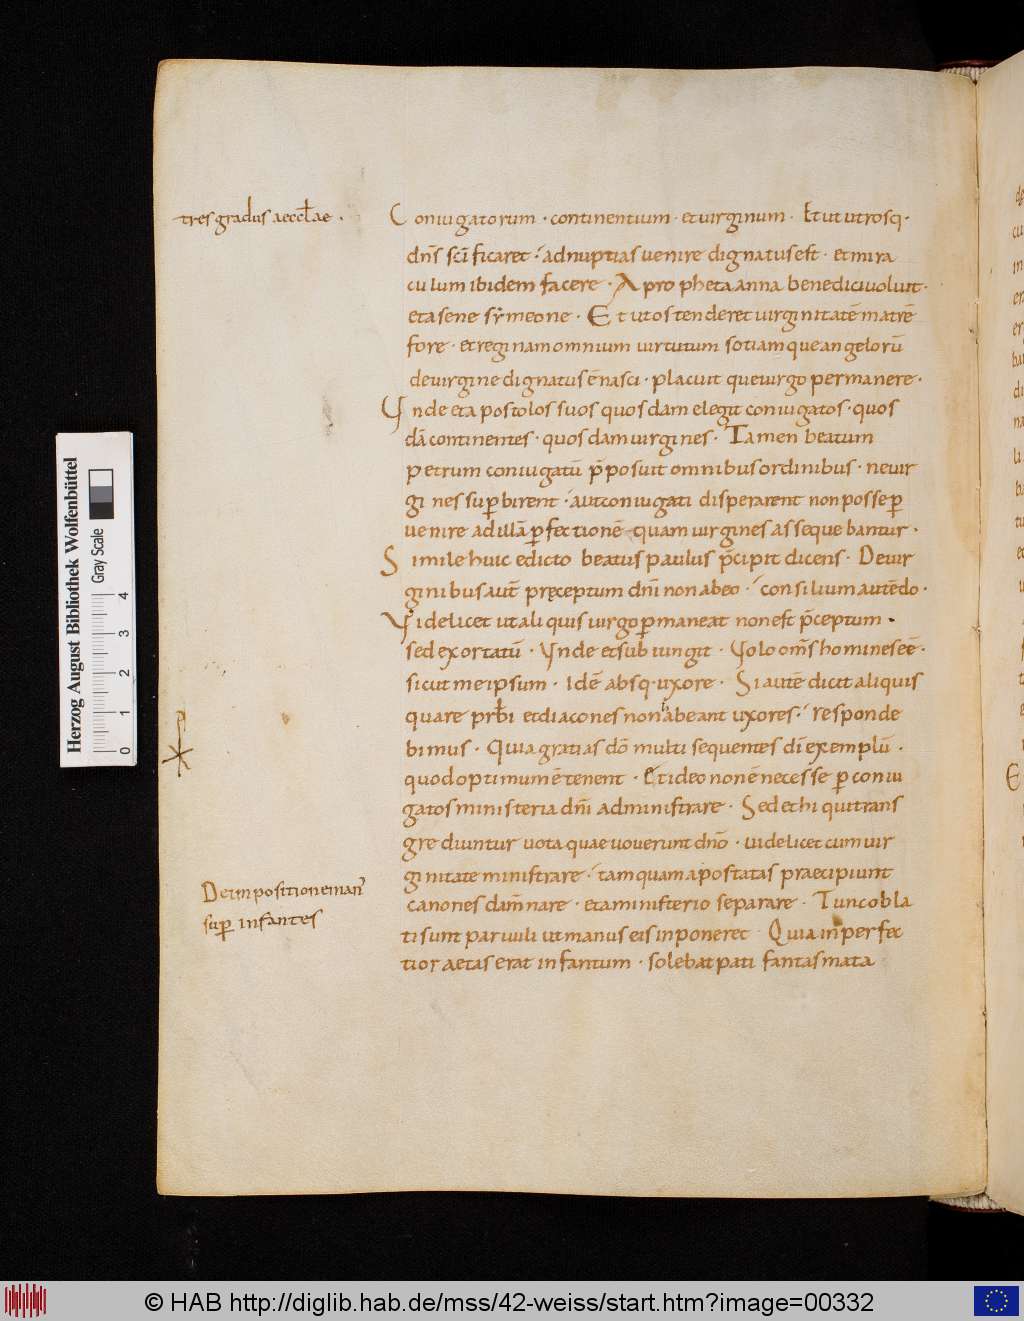 tres gradus aeccłae .
Coniugatorum · continentium · et uirginum · Et ut utrosq·
dn̄s sc̄ificaret · ad nuptias uenire dignatus est · et mira
culum ibidem facere · A propheta anna benedici uoluit ·
et a sene symeone · Et ut ostenderet uirginitatē matrē
fore · et reginam omnium uirtutum sotiamque angelorū
de uirgine dignatus ē nasci · placuit que uirgo permanere ·
Unde et apostolos suos quosdam elegit coniugatos · quos
dā continentes · quosdam uirgines · Tamen beatum
petrum coniugatū p̄posuit omnibus ordinibus · ne uir
gines suꝑbirent · aut coniugati disperarent non posse ꝑ
uenire ad illā ꝑfectionē quam uirgines assequebantur ·
Simile huic edicto beatus paulus p̄cipit dicens · De uir
ginibus aut̄ pręceptum dn̄i non abeo · consilium autē do ·
Videlicet ut aliquis uirgo ꝑmaneat non est p̄ceptum ·
sed exortatū · Unde et subiungit · Uolo om̄s homines eē ·
sicut me ipsum · Idē absq· uxore · Si autē dicit aliquis
quare prb̄i et diacones non habeant uxores · responde
bimus · Quia gratias dō multi sequentes dī exemplū ·
quod optimum ē tenent · Et ideo non ē necesse ꝑ coniu
gatos ministeria dn̄i administrare · Sed et hi qui trans
grediuntur uota quae uouerunt dn̄o · uidelicet cum uir
ginitate ministrare · tamquam apostatas praecipiunt
canones dam̄nare · et a ministerio separare · Tunc obla
De impositione man̄
suꝑ infantes
ti sunt paruuli ut manus eis inponeret · Quia inperfec
tior aetas erat infantum · solebat pati fantasmata
Herzog August Bibliothek Wolfenbüttel
Gray Scale
0 1 2 3 4
© HAB http://diglib.hab.de/mss/42-weiss/start.htm?image=00332